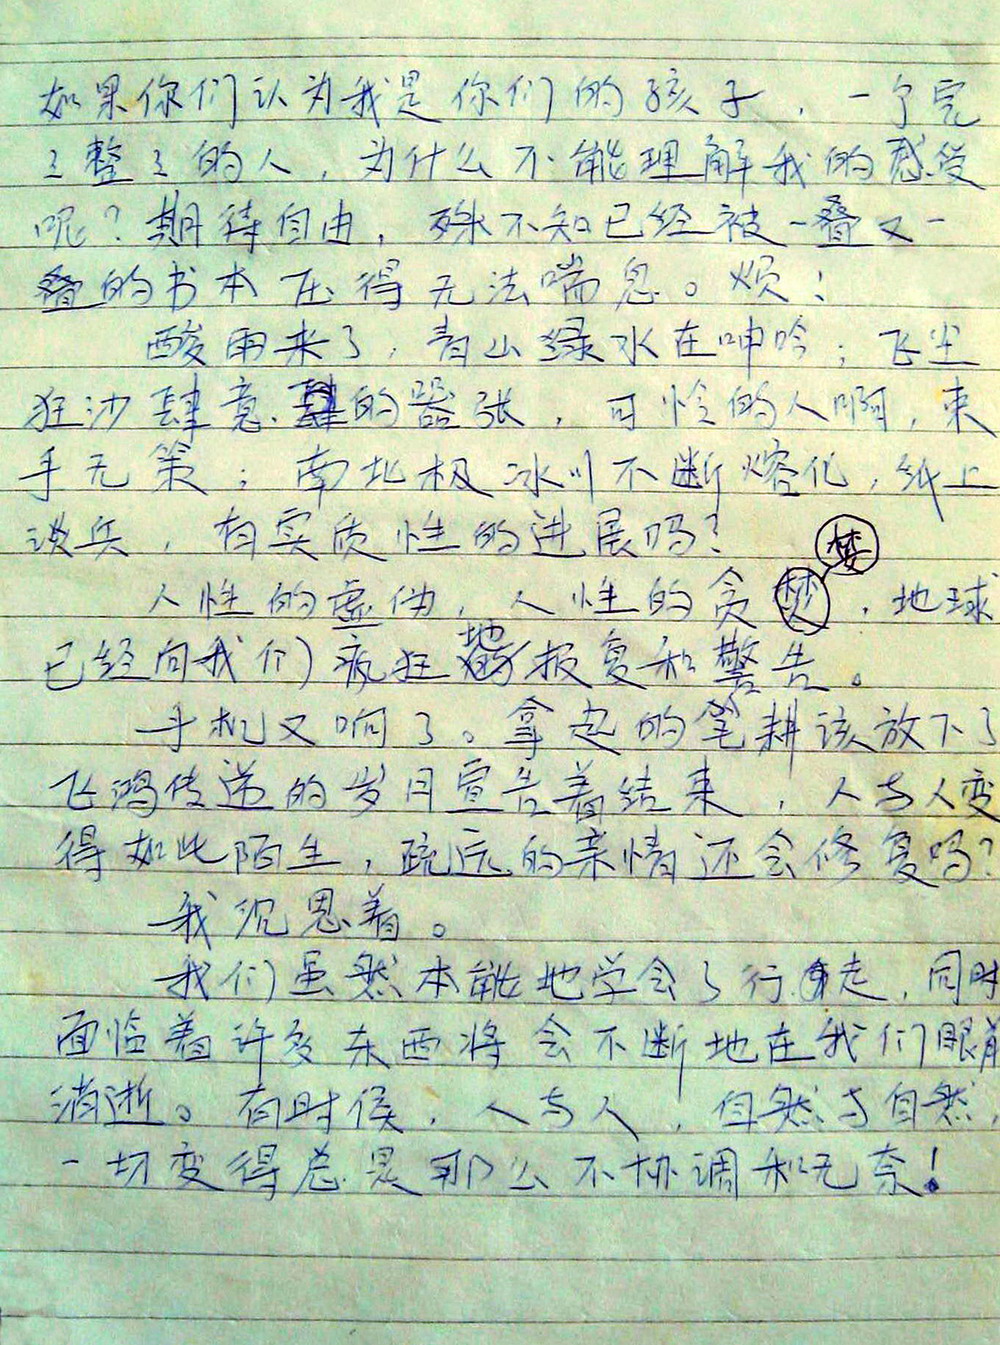 如果你们认为我是你们的孩子，一个完
完整整的人，为什么不能理解我的感受
呢？期待自由，殊不知已经被一叠又一
叠的书本压得无法喘息。烦！
酸雨来了，青山绿水在呻吟；飞尘
狂沙肆意的嚣张，可怜的人啊，束
手无策；南北极冰川不断熔化，纸上
谈兵，有实质性的进展吗？
人性的虚伪，人性的贪婪，地球
已经向我们疯狂地报复和警告。
手机又响了。拿起的笔耕该放下了
飞鸿传递的岁月宣告着结束，人与人变
得如此陌生，疏远的亲情还会修复吗？
我沉思着。
我们虽然本能地学会了行走，同时
面临着许多东西将会不断地在我们眼前
消逝。有时候，人与人，自然与自然，
一切变得总是那么不协调和无奈！